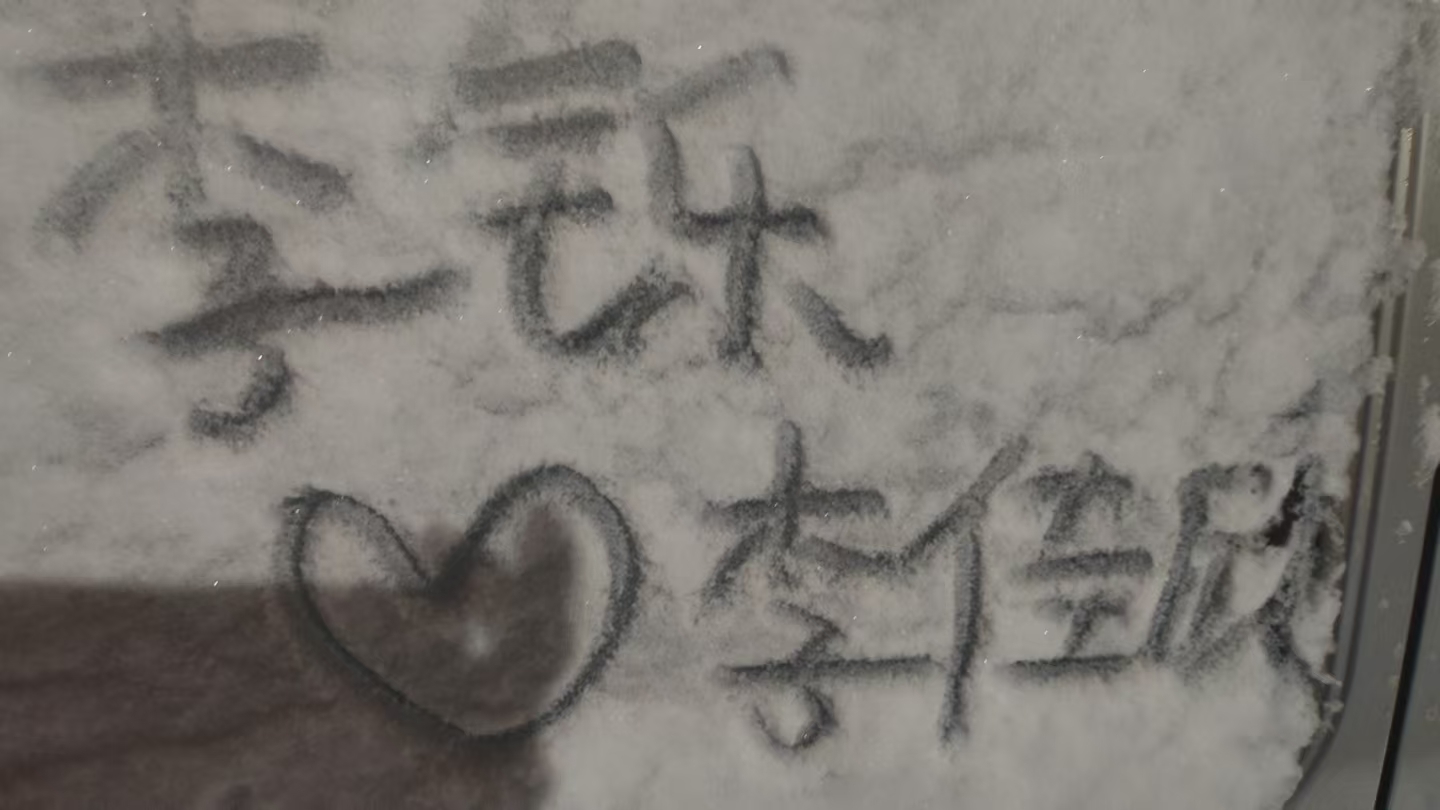 李铄
李佳欣